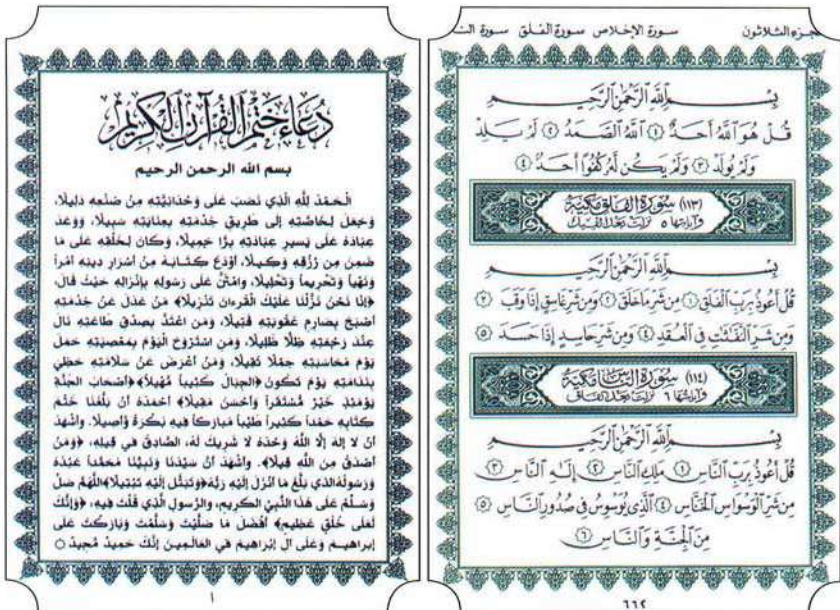 جزء الثلاثون سورة الإخلاص سورة الفلق سورة
بِسْمِ اللَّهِ الرَّحْمَٰنِ الرَّحِيمِ
قُلْ هُوَ اللَّهُ أَحَدٌ ١ اللَّهُ الصَّمَدُ ٢ لَمْ يَلِدْ
وَلَمْ يُولَدْ ٣ وَلَمْ يَكُن لَّهُ كُفُوًا أَحَدٌ ٤
(١١٣) سُورَةُ الفَلَقِ مَكِّيَّة
وَآيَاتُهَا ٥ نَزَلَتْ بَعْدَ الفِيلِ
بِسْمِ اللَّهِ الرَّحْمَٰنِ الرَّحِيمِ
قُلْ أَعُوذُ بِرَبِّ الْفَلَقِ ١ مِن شَرِّ مَا خَلَقَ ٢ وَمِن شَرِّ غَاسِقٍ إِذَا وَقَبَ ٣
وَمِن شَرِّ النَّفَّٰثَٰتِ فِي الْعُقَدِ ٤ وَمِن شَرِّ حَاسِدٍ إِذَا حَسَدَ ٥
(١١٤) سُورَةُ النَّاسِ مَكِّيَّة
وَآيَاتُهَا ٦ نَزَلَتْ بَعْدَ الفَلَقِ
بِسْمِ اللَّهِ الرَّحْمَٰنِ الرَّحِيمِ
قُلْ أَعُوذُ بِرَبِّ النَّاسِ ١ مَلِكِ النَّاسِ ٢ إِلَٰهِ النَّاسِ ٣
مِن شَرِّ الْوَسْوَاسِ الْخَنَّاسِ ٤ الَّذِي يُوَسْوِسُ فِي صُدُورِ النَّاسِ ٥
مِنَ الْجِنَّةِ وَالنَّاسِ ٦
٦٦٢
دُعَاءُ خَتْمِ القُرْآنِ الكَرِيمِ
بسم الله الرحمن الرحيم
الْحَمْدُ لِلَّهِ الَّذِي نَصَبَ عَلَى وَحْدَانِيَّتِهِ مِنْ صُنْعِهِ دَلِيلًا،
وَجَعَلَ لِخَاصَّتِهِ إِلَى طَرِيقِ خِدْمَتِهِ بِعِنَايَتِهِ سَبِيلًا، وَوَعَدَ
عِبَادَهُ عَلَى يَسِيرِ عِبَادَتِهِ بِرًّا جَمِيلًا، وَكَانَ لِخَلْقِهِ عَلَى مَا
ضَمِنَ مِنْ رِزْقِهِ وَكِيلًا، أَوْدَعَ كِتَابَهُ مِنْ أَسْرَارِ دِينِهِ أَمْراً
وَنَهْياً وَتَحْرِيماً وَتَحْلِيلًا، وَامْتَنَّ عَلَى رَسُولِهِ بِإِنْزَالِهِ حَيْثُ قَالَ،
﴿إِنَّا نَحْنُ نَزَّلْنَا عَلَيْكَ الْقُرْءَانَ تَنْزِيلًا﴾ مَنْ عَدَلَ عَنْ خِدْمَتِهِ
أَصْبَحَ بِصَارِمِ عُقُوبَتِهِ قَتِيلًا، وَمَنِ اعْتَدَّ بِصِدْقِ طَاعَتِهِ نَالَ
عِنْدَ رَجْعَتِهِ ظِلًّا ظَلِيلًا، وَمَنِ اسْتَرْوَحَ الْيَوْمَ بِمَعْصِيَتِهِ حَمَلَ
يَوْمَ مُحَاسَبَتِهِ حِمْلًا ثَقِيلًا، وَمَنْ أَعْرَضَ عَنْ سَلَامَتِهِ حَظِيَ
بِنَدَامَتِهِ يَوْمَ تَكُونُ ﴿الْجِبَالُ كَثِيباً مَّهِيلًا﴾ ﴿أَصْحَابُ الْجَنَّةِ
يَوْمَئِذٍ خَيْرٌ مُّسْتَقَرّاً وَأَحْسَنُ مَقِيلًا﴾ أَحْمَدُهُ أَنْ بَلَّغَنَا خَتْمَ
كِتَابِهِ حَمْداً كَثِيراً طَيِّباً مُبَارَكاً فِيهِ بُكْرَةً وَأَصِيلًا. وَأَشْهَدُ
أَنْ لَا إِلَهَ إِلَّا اللَّهُ وَحْدَهُ لَا شَرِيكَ لَهُ، الصَّادِقُ فِي قِيلِهِ، ﴿وَمَنْ
أَصْدَقُ مِنَ اللَّهِ قِيلًا﴾. وَأَشْهَدُ أَنَّ سَيِّدَنَا وَنَبِيَّنَا مُحَمَّداً عَبْدُهُ
وَرَسُولُهُ الَّذِي بَلَّغَ مَا أُنْزِلَ إِلَيْهِ رَبِّهِ ﴿وَتَبَتَّلْ إِلَيْهِ تَبْتِيلًا﴾ اللَّهُمَّ صَلِّ
وَسَلِّمْ عَلَى هَذَا النَّبِيِّ الْكَرِيمِ، وَالرَّسُولِ الَّذِي قُلْتَ فِيهِ، ﴿وَإِنَّكَ
لَعَلَى خُلُقٍ عَظِيمٍ﴾ أَفْضَلَ مَا صَلَّيْتَ وَسَلَّمْتَ وَبَارَكْتَ عَلَى
إِبْرَاهِيمَ وَعَلَى آلِ إِبْرَاهِيمَ فِي الْعَالَمِينَ إِنَّكَ حَمِيدٌ مَّجِيدٌ
١